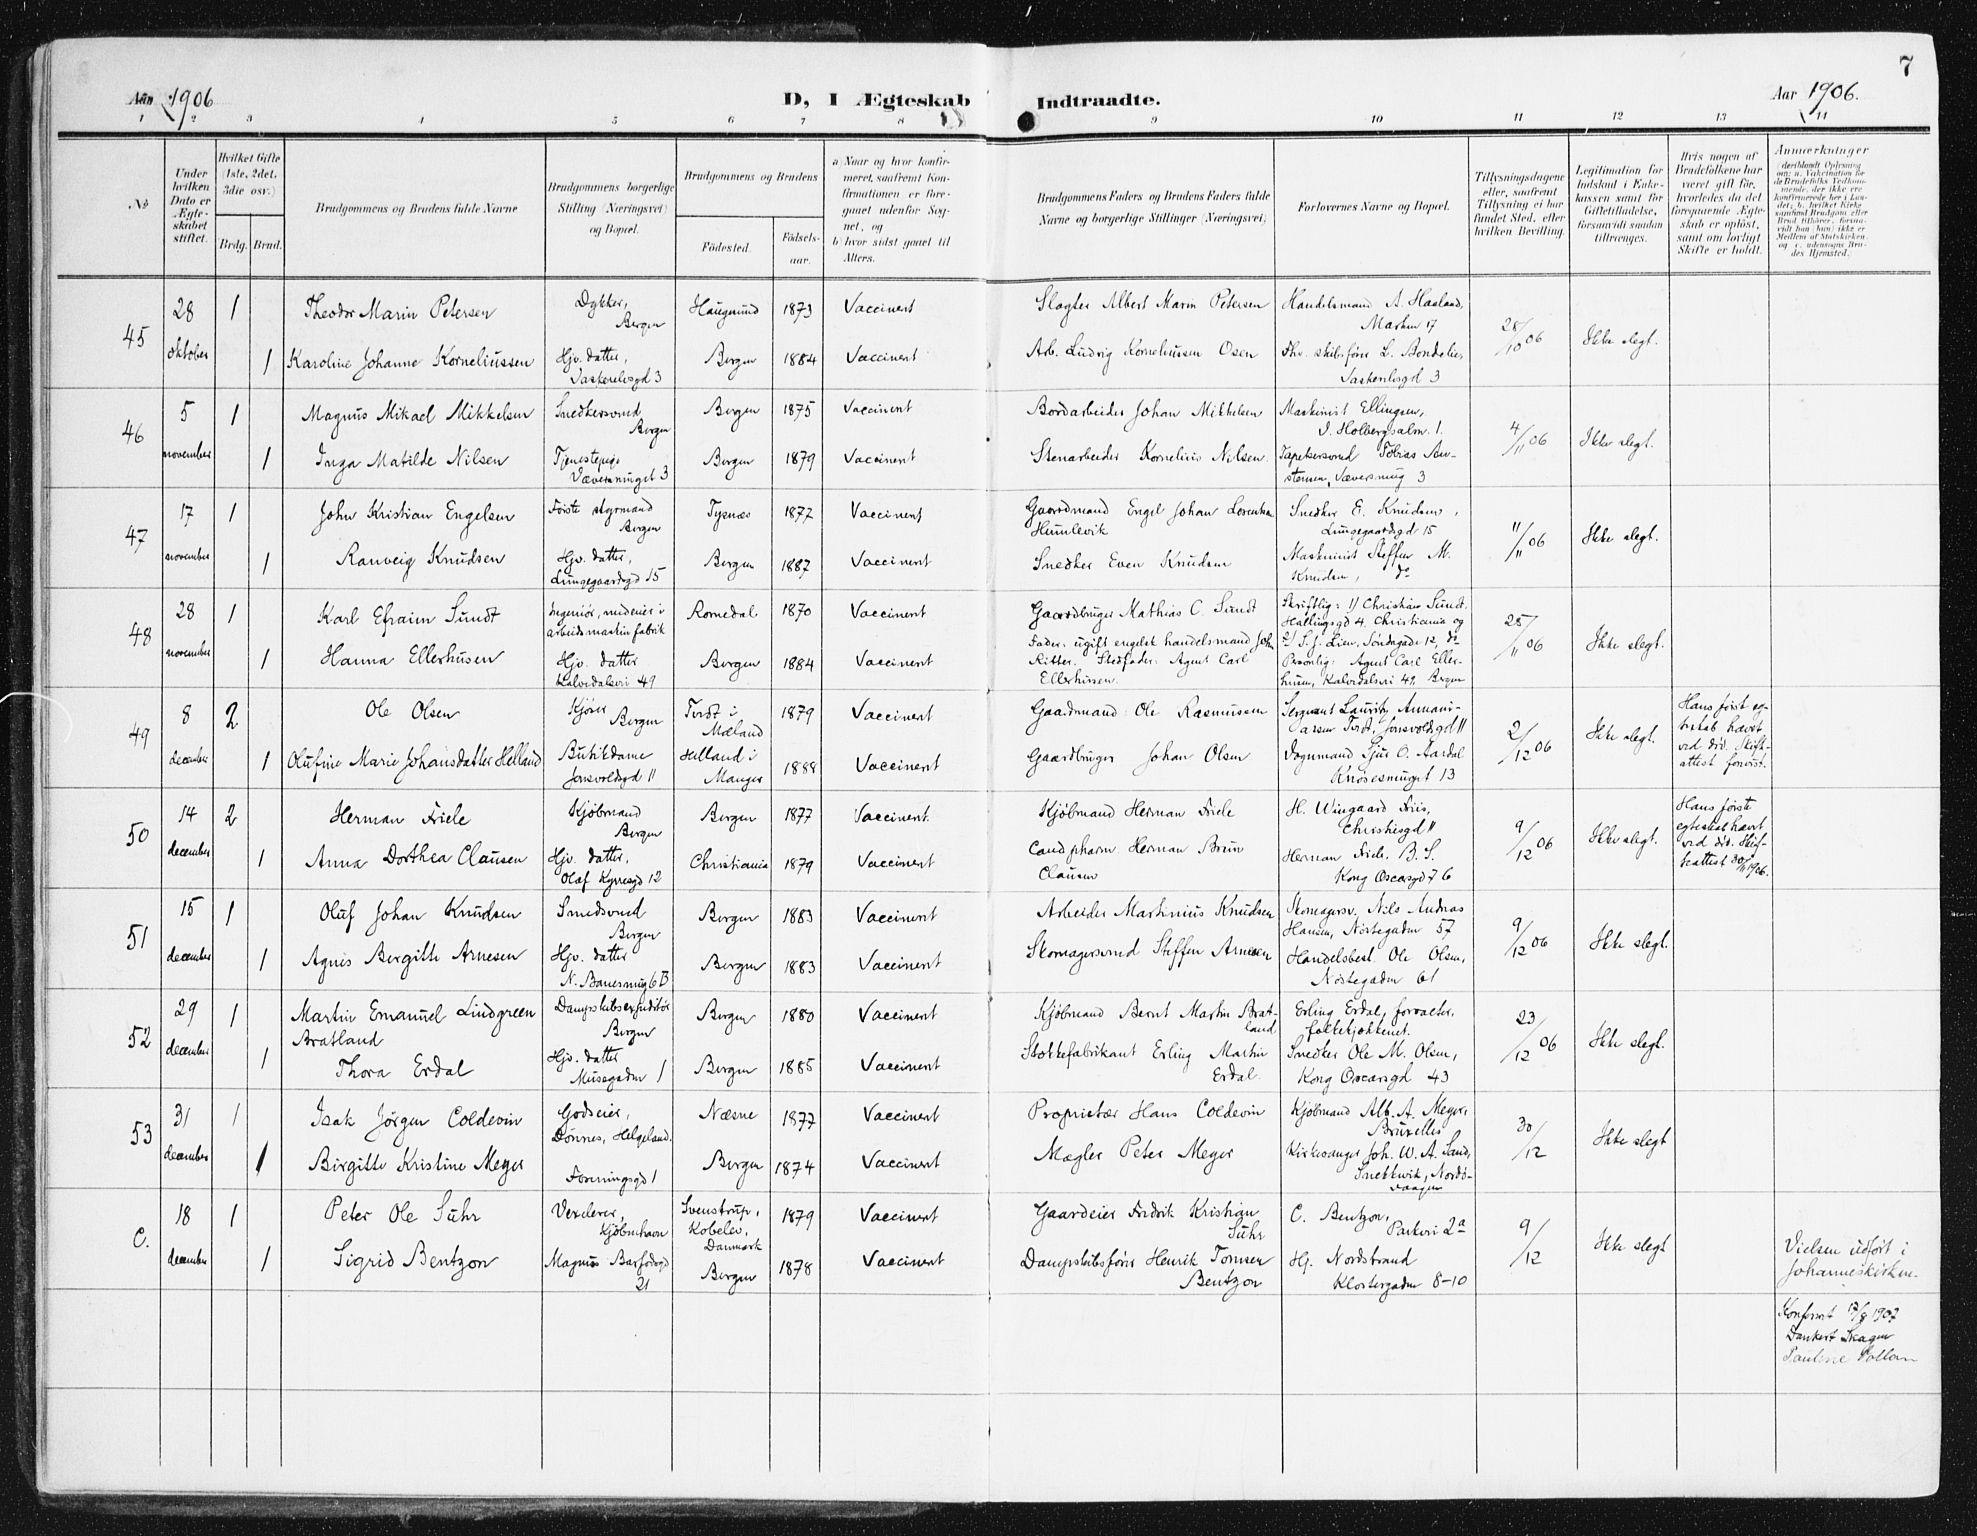 7
Aar 1906 D, I Ægteskab Indtraadte. Aar 1906.
1 2 3 4 5 6 7 8 9 10 11 12 13 14
№
Under hvilken Dato er Ægteskabet stiftet.
Hvilket Gifte (1ste, 2det, 3die osv.)
Brdg. Brud.
Brudgommens og Brudens fulde Navne
Brudgommens borgerlige Stilling (Næringsvei) og Bopæl.
Brudgommens og Brudens
Födested. Födselsaar.
a) Naar og hvor konfirmeret, saafremt Konfirmationen er foregaaet udenfor Sognet, og
b) hvor sidst gaaet til Alters.
Brudgommens Faders og Brudens Faders fulde Navne og borgerlige Stillinger (Næringsvei)
Forlovernes Navne og Bopæl.
Tillysningsdagene eller, saafremt Tillysning ei har fundet Sted, efter hvilken Bevilling.
Legitimation for Indskud i Enkekassen samt for Giftetilladelse, forsaavidt saadan tiltrænges.
Hvis nogen af Brudefolkene har været gift før, hvorledes da det foregaaende Ægteskab er oplöst, samt om lovligt Skifte er holdt.
Anmærkninger
45 28 oktober 1 Theodor Marin Petersen Dykker, Bergen Haugesund 1873 Vaccinert Slagter Albert Marin Petersen Handelsmand A. Haaland, Marken 17 28/10 06 Ikke slegt.
1 Karoline Johanne Korneliussen Hjv. datter, Vaskerelvsgd 3 Bergen 1884 Vaccinert Arb. Ludvig Korneliussen Osen Fhv. skibsfører L. Bondelie, Vaskerelvsgd 3
46 5 november 1 Magnus Mikael Mikkelsen Snedkersvend Bergen Bergen 1875 Vaccinert Bordarbeider Johan Mikkelsen Maskinist Ellingsen, D. Holbergsalm. 1. 4/11 06 Ikke slegt.
1 Inga Matilde Nilsen Tjenestepige Bergen 1879 Vaccinert Stenarbeider Kornelius Nilsen Tapetsersvend Tobias
47 17 november 1 John Kristian Engelsen Første styrmand Bergen Tysnæs 1877 Vaccinert Gaardmand Engel Johan Humlevik Snedker E. Knudsen, Lungegaardsgd 15 11/11 06 Ikke slegt.
1 Ranveig Knudsen Hjv. datter, Lungegaardsgd 15 Bergen 1887 Vaccinert Snedker Even Knudsen Maskinist Steffen M. Knudsen, do
48 28 november 1 Karl Efraim Sundt Ingeniør, medeier i arbeidsmaskinfabrik Romedal 1870 Vaccinert Gaardbruger Mathias C. Sundt Skriftlig: 1/ Christian Sundt, Hallingsgd 4, Christiania og 2/ S. J. Lien, Søndagade 12, do 25/11 06 Ikke slegt.
1 Hanna Ellerhusen Hjv. datter Kalvedalsvei 49 Bergen 1884 Vaccinert Fader: ugift engelsk handelsmand John Ritter. Stedfader: Agent Carl Ellerhusen. Personlig: Agent Carl Ellerhusen, Kalvedalsvei 49, Bergen
49 8 december 2 Ole Olsen Kjører Bergen Tveit i Mæland 1879 Vaccinert Gaardmand Ole Rasmussen Sergeant Lauritz Jonsvoldsgd 11 2/12 06 Ikke slegt. Hans først egteskab hævet ved død. Skifteattest forevist.
1 Olufine Marie Johansdatter Helland Butikdame Jonsvoldsgd 11 Helland i Manger 1888 Vaccinert Gaardbruger Johan Olsen Vognmand Sjur O. Aardal Knøsesmuget 13
50 14 december 2 Herman Friele Kjøbmand Bergen Bergen 1877 Vaccinert. Kjøbmand Herman Friele H. Wingaard Friis, Christiesgd 11 9/12 06 Ikke slegt. Hans første egteskab hævet ved død. Skifteattest 30/11 1906.
1 Anna Dorthea Clausen Hjv. datter, Olaf Kyrresgd 12 Christiania 1879 Vaccinert Cand. pharm. Herman Brun Clausen Herman Friele, B. S. Kong Oscarsgd 76
51 15 december 1 Oluf Johan Knudsen Smedsvend Bergen Bergen 1883 Vaccinert Arbeider Martinius Knudsen Skomagersv. Nils Andreas Hansen, Nøstegaden 57 9/12 06 Ikke slegt.
1 Agnes Bergitte Arnesen Hjv. datter N. Banesmug 6 B Bergen 1883 Vaccinert Skomagersvend Steffen Arnesen Handelsbest. Ole Olsen, Nøstegaden 61
52 29 december 1 Martin Emanuel Lindgreen Bratland Dampskibsexpeditør Bergen Bergen 1880 Vaccinert Kjøbmand Bernt Martin Bratland Erling Erdal, forvalter, folkekjøkkenet. 23/12 06 Ikke slegt.
1 Thora Erdal Hjv. datter Musegaden 1 Bergen 1885 Vaccinert Stokkefabrikant Erling Martin Erdal Snedker Ole M. Olsen, Kong Oscarsgd 43
53 31 december 1 Isak Jørgen Coldevin Godseier, Dønnes, Helgeland. Næsne 1877 Vaccinert Proprietær Hans Coldevin Kjøbmand Alb. A. Meyer, Bruxelles 30/12 Ikke slegt
1 Birgitte Kristine Meyer Foreningsgd 1 Bergen 1874 Vaccinert Mægler Peter Meyer Kirkesanger Joh. W. A. Sand, Snekkevik,
C. 18 december 1 Peter Ole Suhr Vexelerer, Kjøbenhavn Svenstrup, Kobelev, Danmark 1879 Vaccinert Gaardeier Fredrik Kristian Suhr C. Bentzon, Parkvei 2a 9/12 Ikke slegt
1 Sigrid Bentzon Magnus Barfodsgd 21 Bergen 1878 Vaccinert Dampskibsfører Henrik Tomsen Bentzon Hj. Nordstrand Klostergaden 8-10 Vielsen udført i Johanneskirken.
Konferert 17/8 1907
Dankert Skagen
Pauline